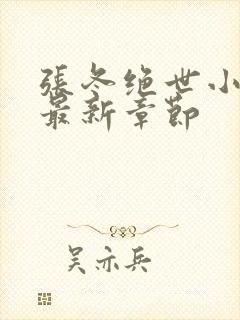 張冬绝世小
最新章節
吴亦兵